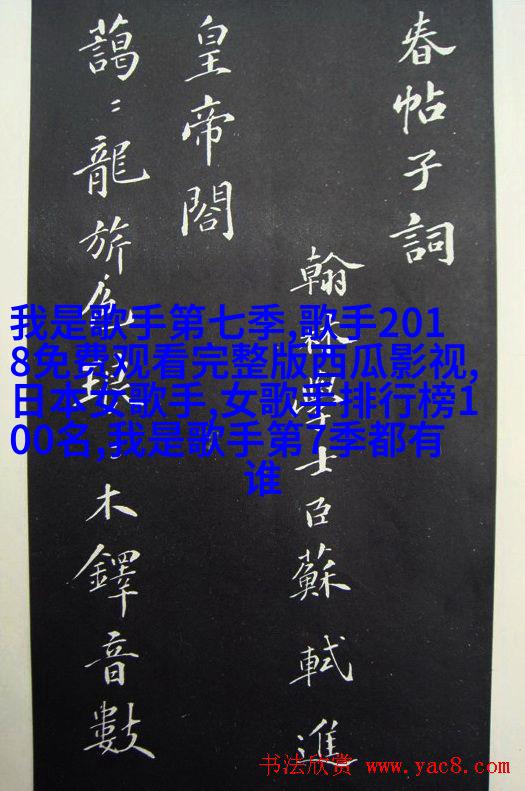 春帖子詞
翰林學士臣蘇軾進
皇帝閣
藹〻龍旂色木鐸音數
我是歌手第七季,歌手201
8免费观看完整版西瓜影视,
日本女歌手,女歌手排行榜1
00名,我是歌手第7季都有
谁
书法欣赏 www.yac8.com